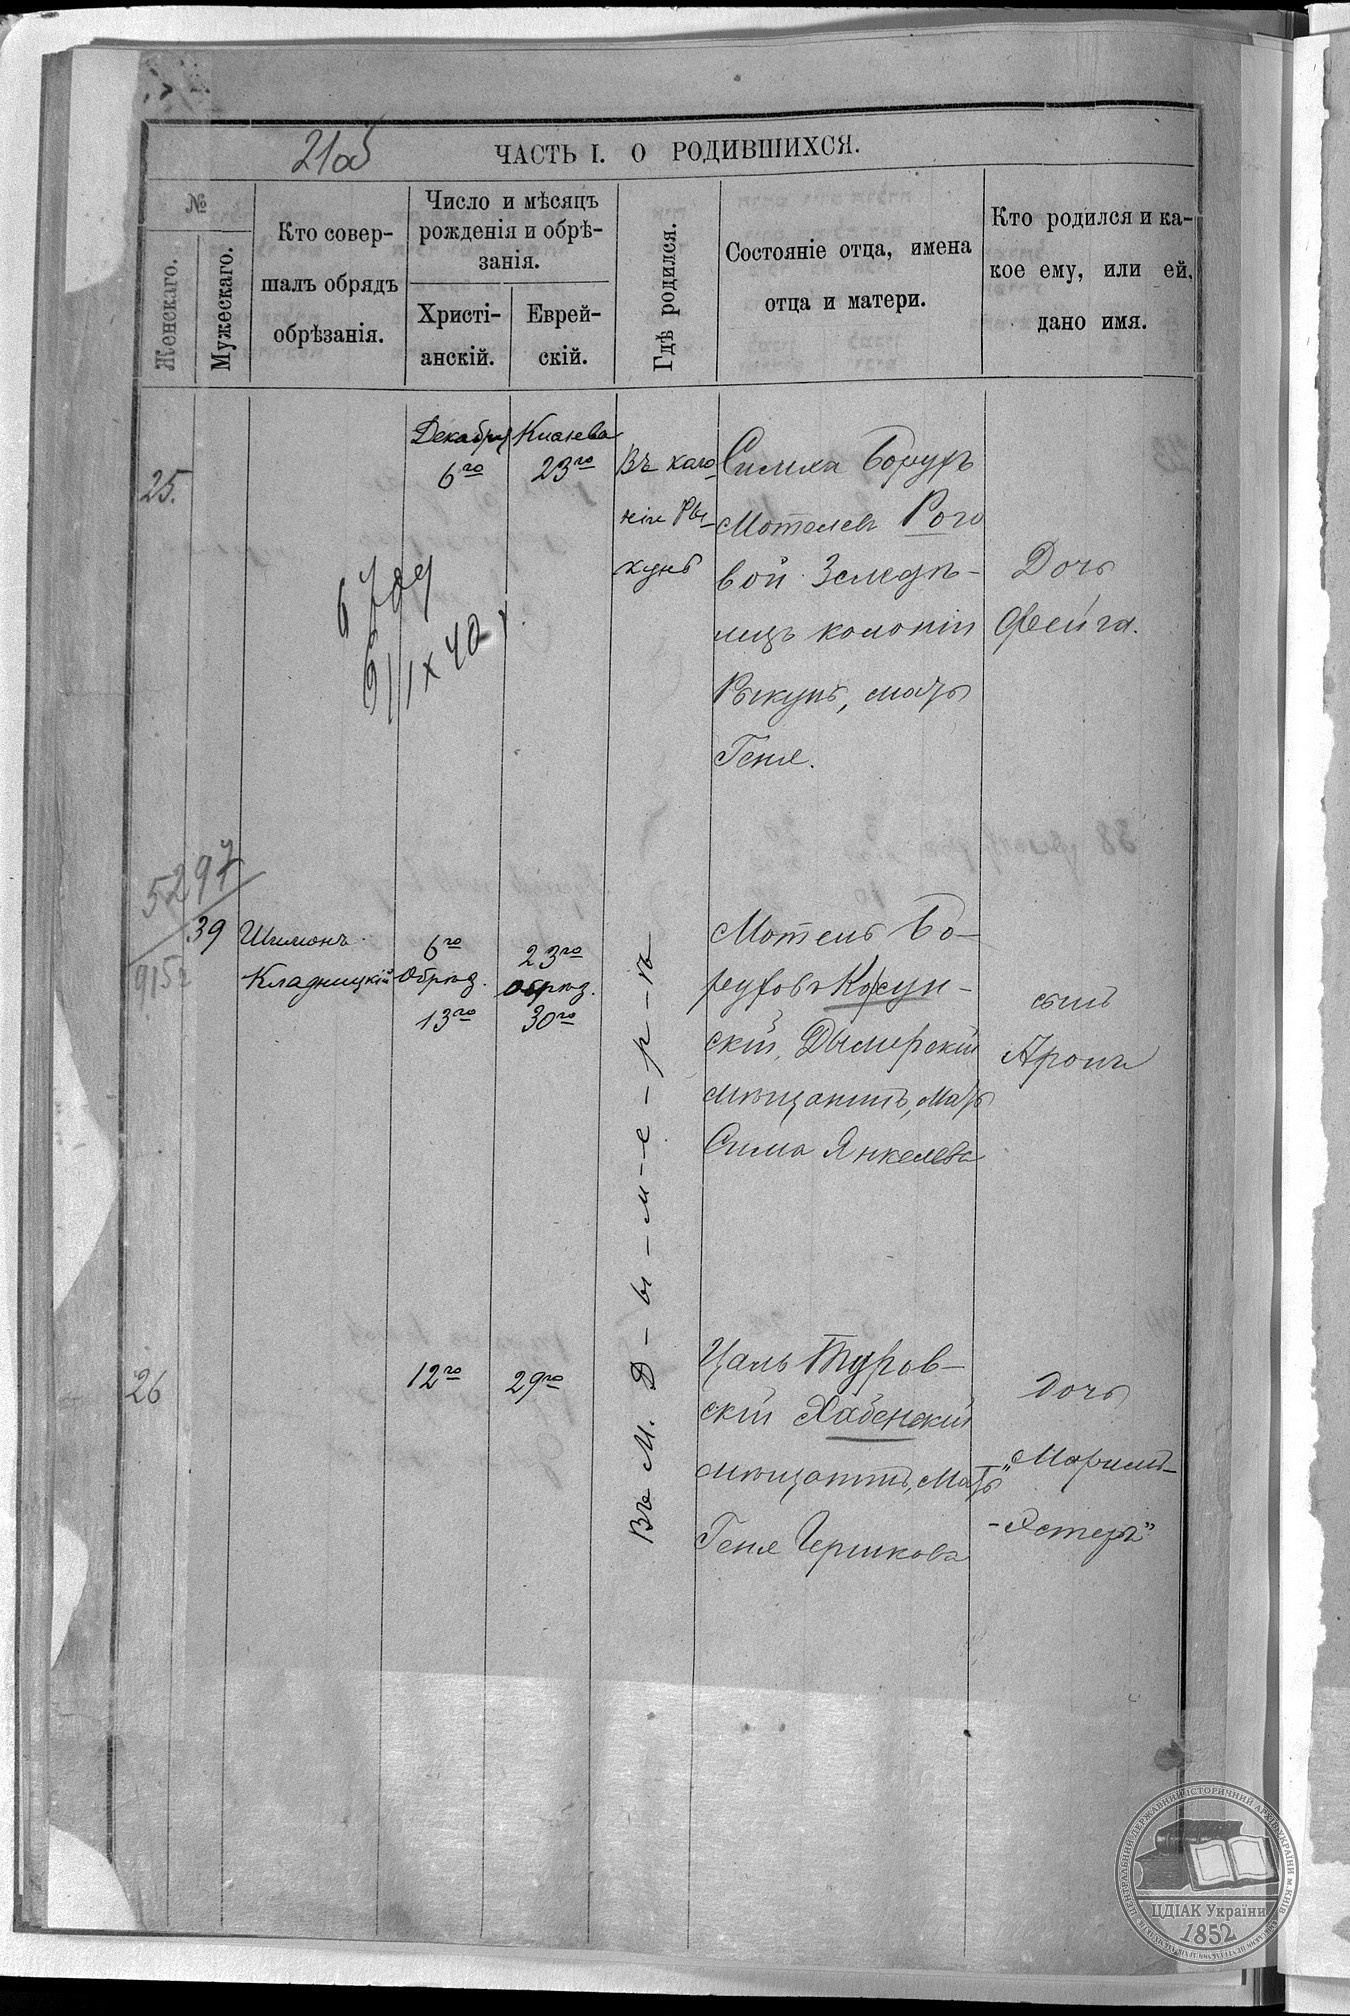 21об
ЧАСТЬ I. О РОДИВШИХСЯ.
№
Женскаго.
Мужескаго.
Кто совер-
шалъ обрядъ
обрѣзанія.
Число и мѣсяцъ
рожденія и обрѣ-
занія.
Христі-
анскій.
Еврей-
скій.
Гдѣ родился.
Состояніе отца, имена
отца и матери.
Кто родился и ка-
кое ему, или ей,
дано имя.
25.
Декабря
6го
Кислева
23го
Въ коло-
ніи Ры-
кунѣ
Симха Борухъ
Мотелев Рого
вой Земледѣ-
лецъ колоніи
Рыкунь, мать
Геня.
Дочь
Фейга.
5297
9152
39
Шимонъ
Кладницкій
6го
Обрѣз.
13го
23го
Обрѣз.
30го
Въ М. Д-ы-м-е-р-ѣ
Мотель Бо-
руховъ Корсун-
скій, Дымерскій
мѣщанинъ, Мать
Сима Янкелева
сынъ
Аронъ
26
12го
29го
Цаль Туров-
скій Хабенскій
мѣщанинъ, Мать
Геня Гершкова
Дочь
„Маріимъ-
-Эстеръ”
ЦЕНТРАЛЬНИЙ ДЕРЖАВНИЙ ІСТОРИЧНИЙ АРХІВ УКРАЇНИ М.КИЇВ
ЦДІАК України
1852